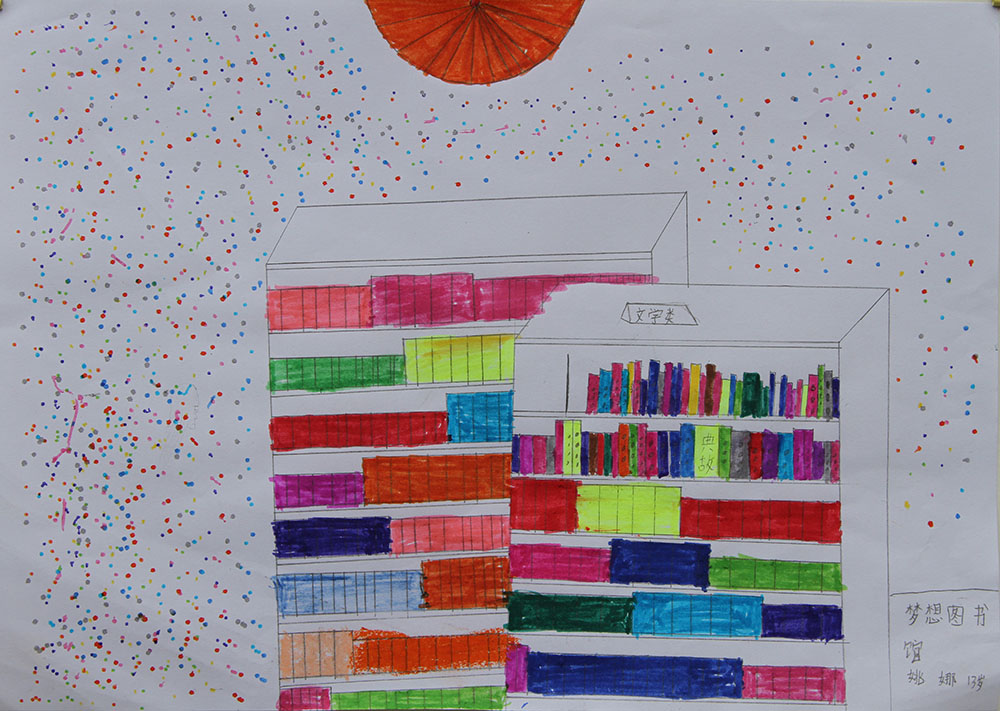 文学类
典
故
梦想图书
馆
姚娜 13岁